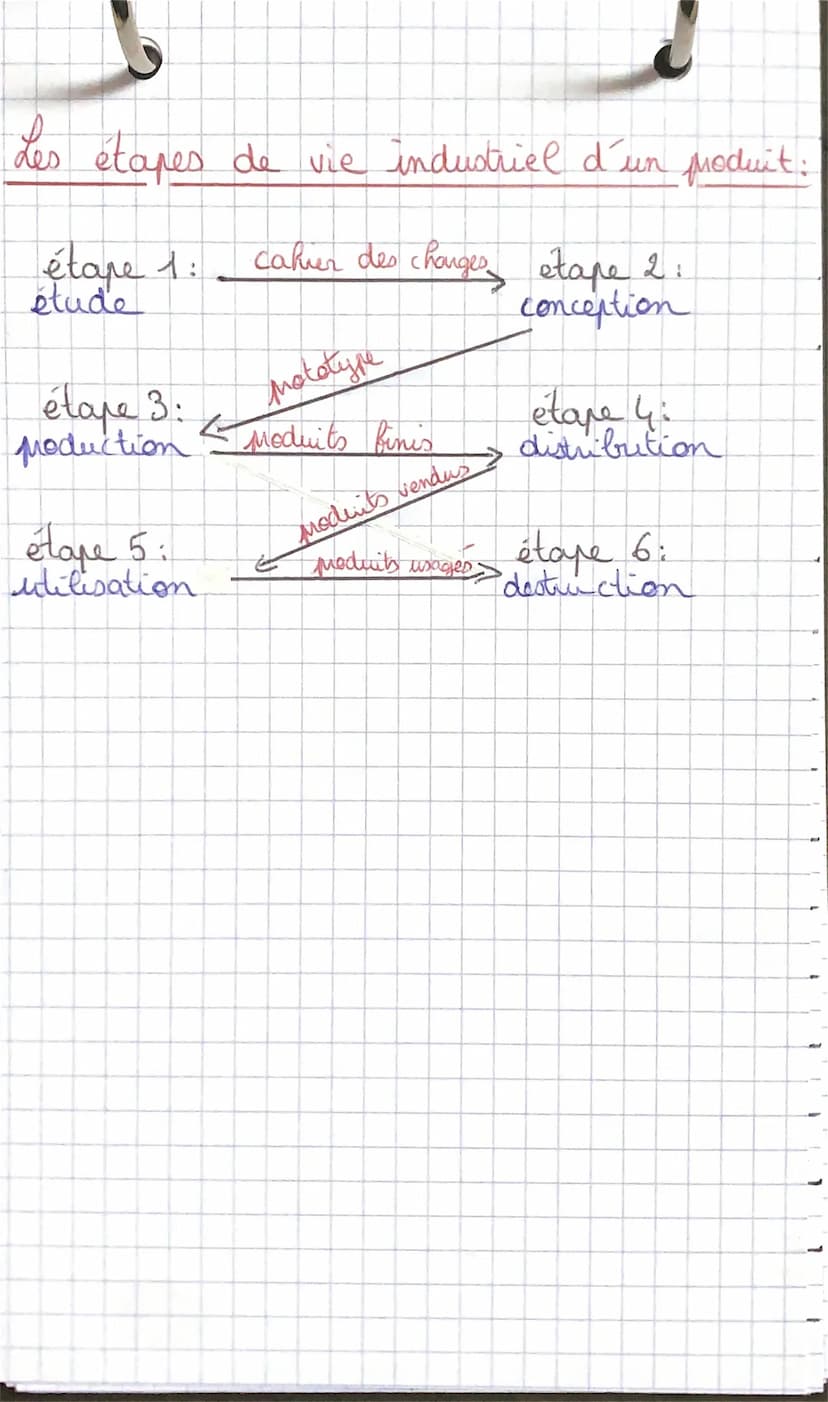 Les étapes de vie industriel d'un produit:
étape 1: cahier des charges etape 2:
étude conception
prototype
étape 3: étape 4:
production produits finis distribution
produits vendus
étape 5: produits usagés étape 6:
utilisation destruction